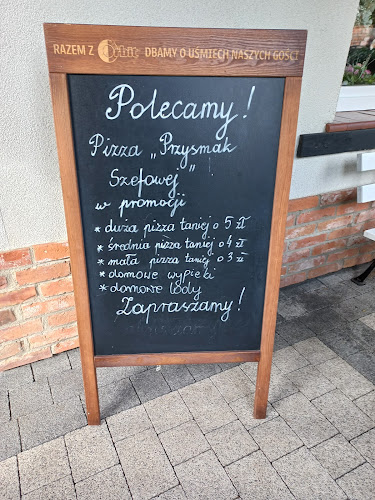 RAZEM Z Orbit DBAMY O UŚMIECH NASZYCH GOŚCI
Polecamy!
Pizza „Przysmak
Szefowej"!
w promocji
* duża pizza taniej o 5 zł
* średnia pizza taniej o 4 zł
* mała pizza taniej o 3 zł
* domowe wypieki
* domowe lody
Zapraszamy!